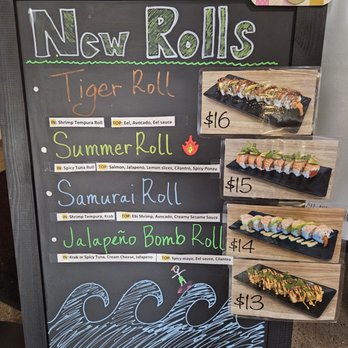 New Rolls
Tiger Roll
IN: Shrimp Tempura Roll TOP: Eel, Avocado, Eel sauce
$16
Summer Roll
IN: Spicy Tuna Roll TOP: Salmon, Jalapeno, Lemon slices, Cilantro, Spicy Ponzu
$15
Samurai Roll
IN: Shrimp Tempura, Krab TOP: Ebi Shrimp, Avocado, Creamy Sesame Sauce
$14
Jalapeño Bomb Roll
IN: Krab or Spicy Tuna, Cream Cheese, Jalapeno TOP: Spicy mayo, Eel sauce, Cilantro
$13